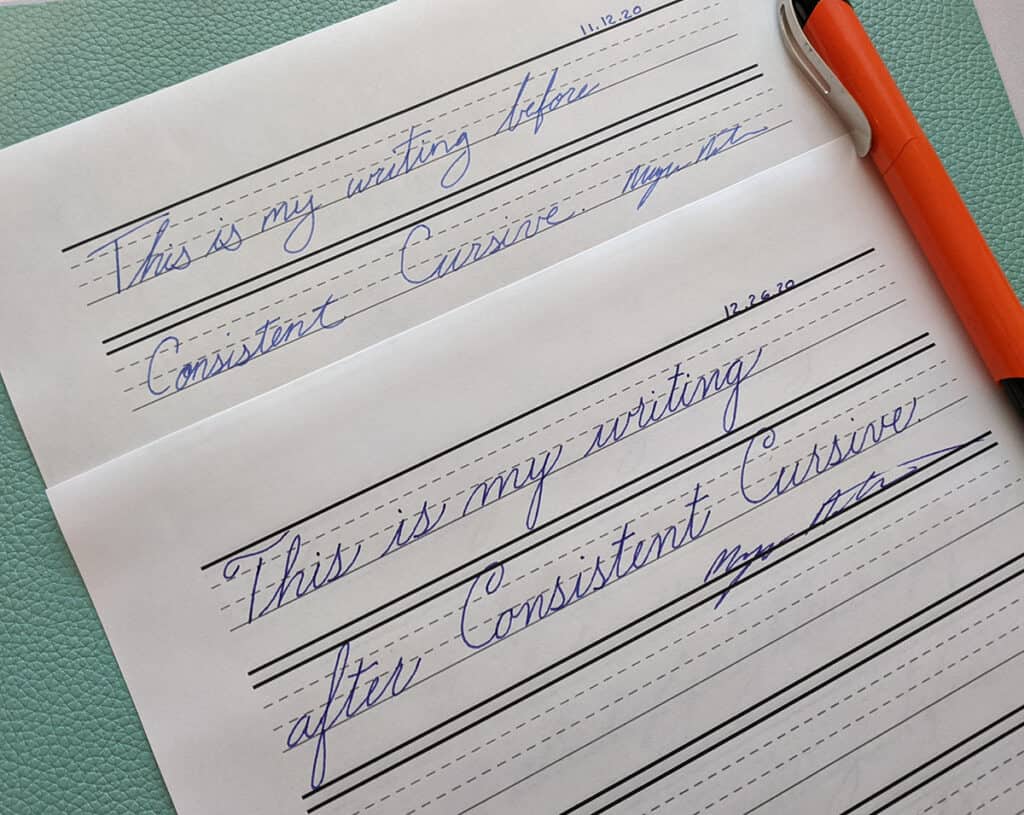 11.12.20
This is my writing before
Consistent Cursive.
12.26.20
This is my writing
after Consistent Cursive.